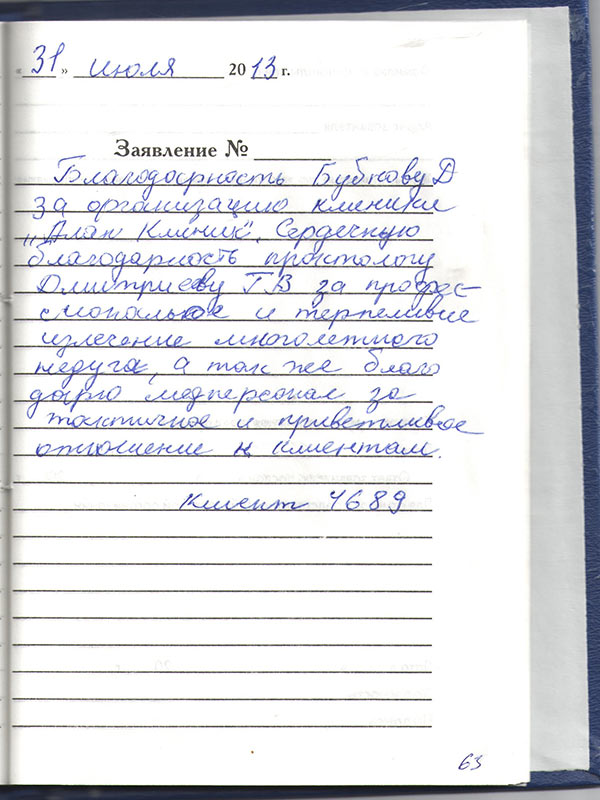 31 » июля 2013 г.
Заявление №
Благодарность Бубнову Д
за организацию клиники
„Алан Клиник". Сердечную
благодарность проктологу
Дмитриеву ГВ за профес-
сиональное и терпеливое
излечение многолетнего
недуга, а так же благо
дарю медперсонал за
тактичное и приветливое
отношение к клиентам.
Клиент 4689
63